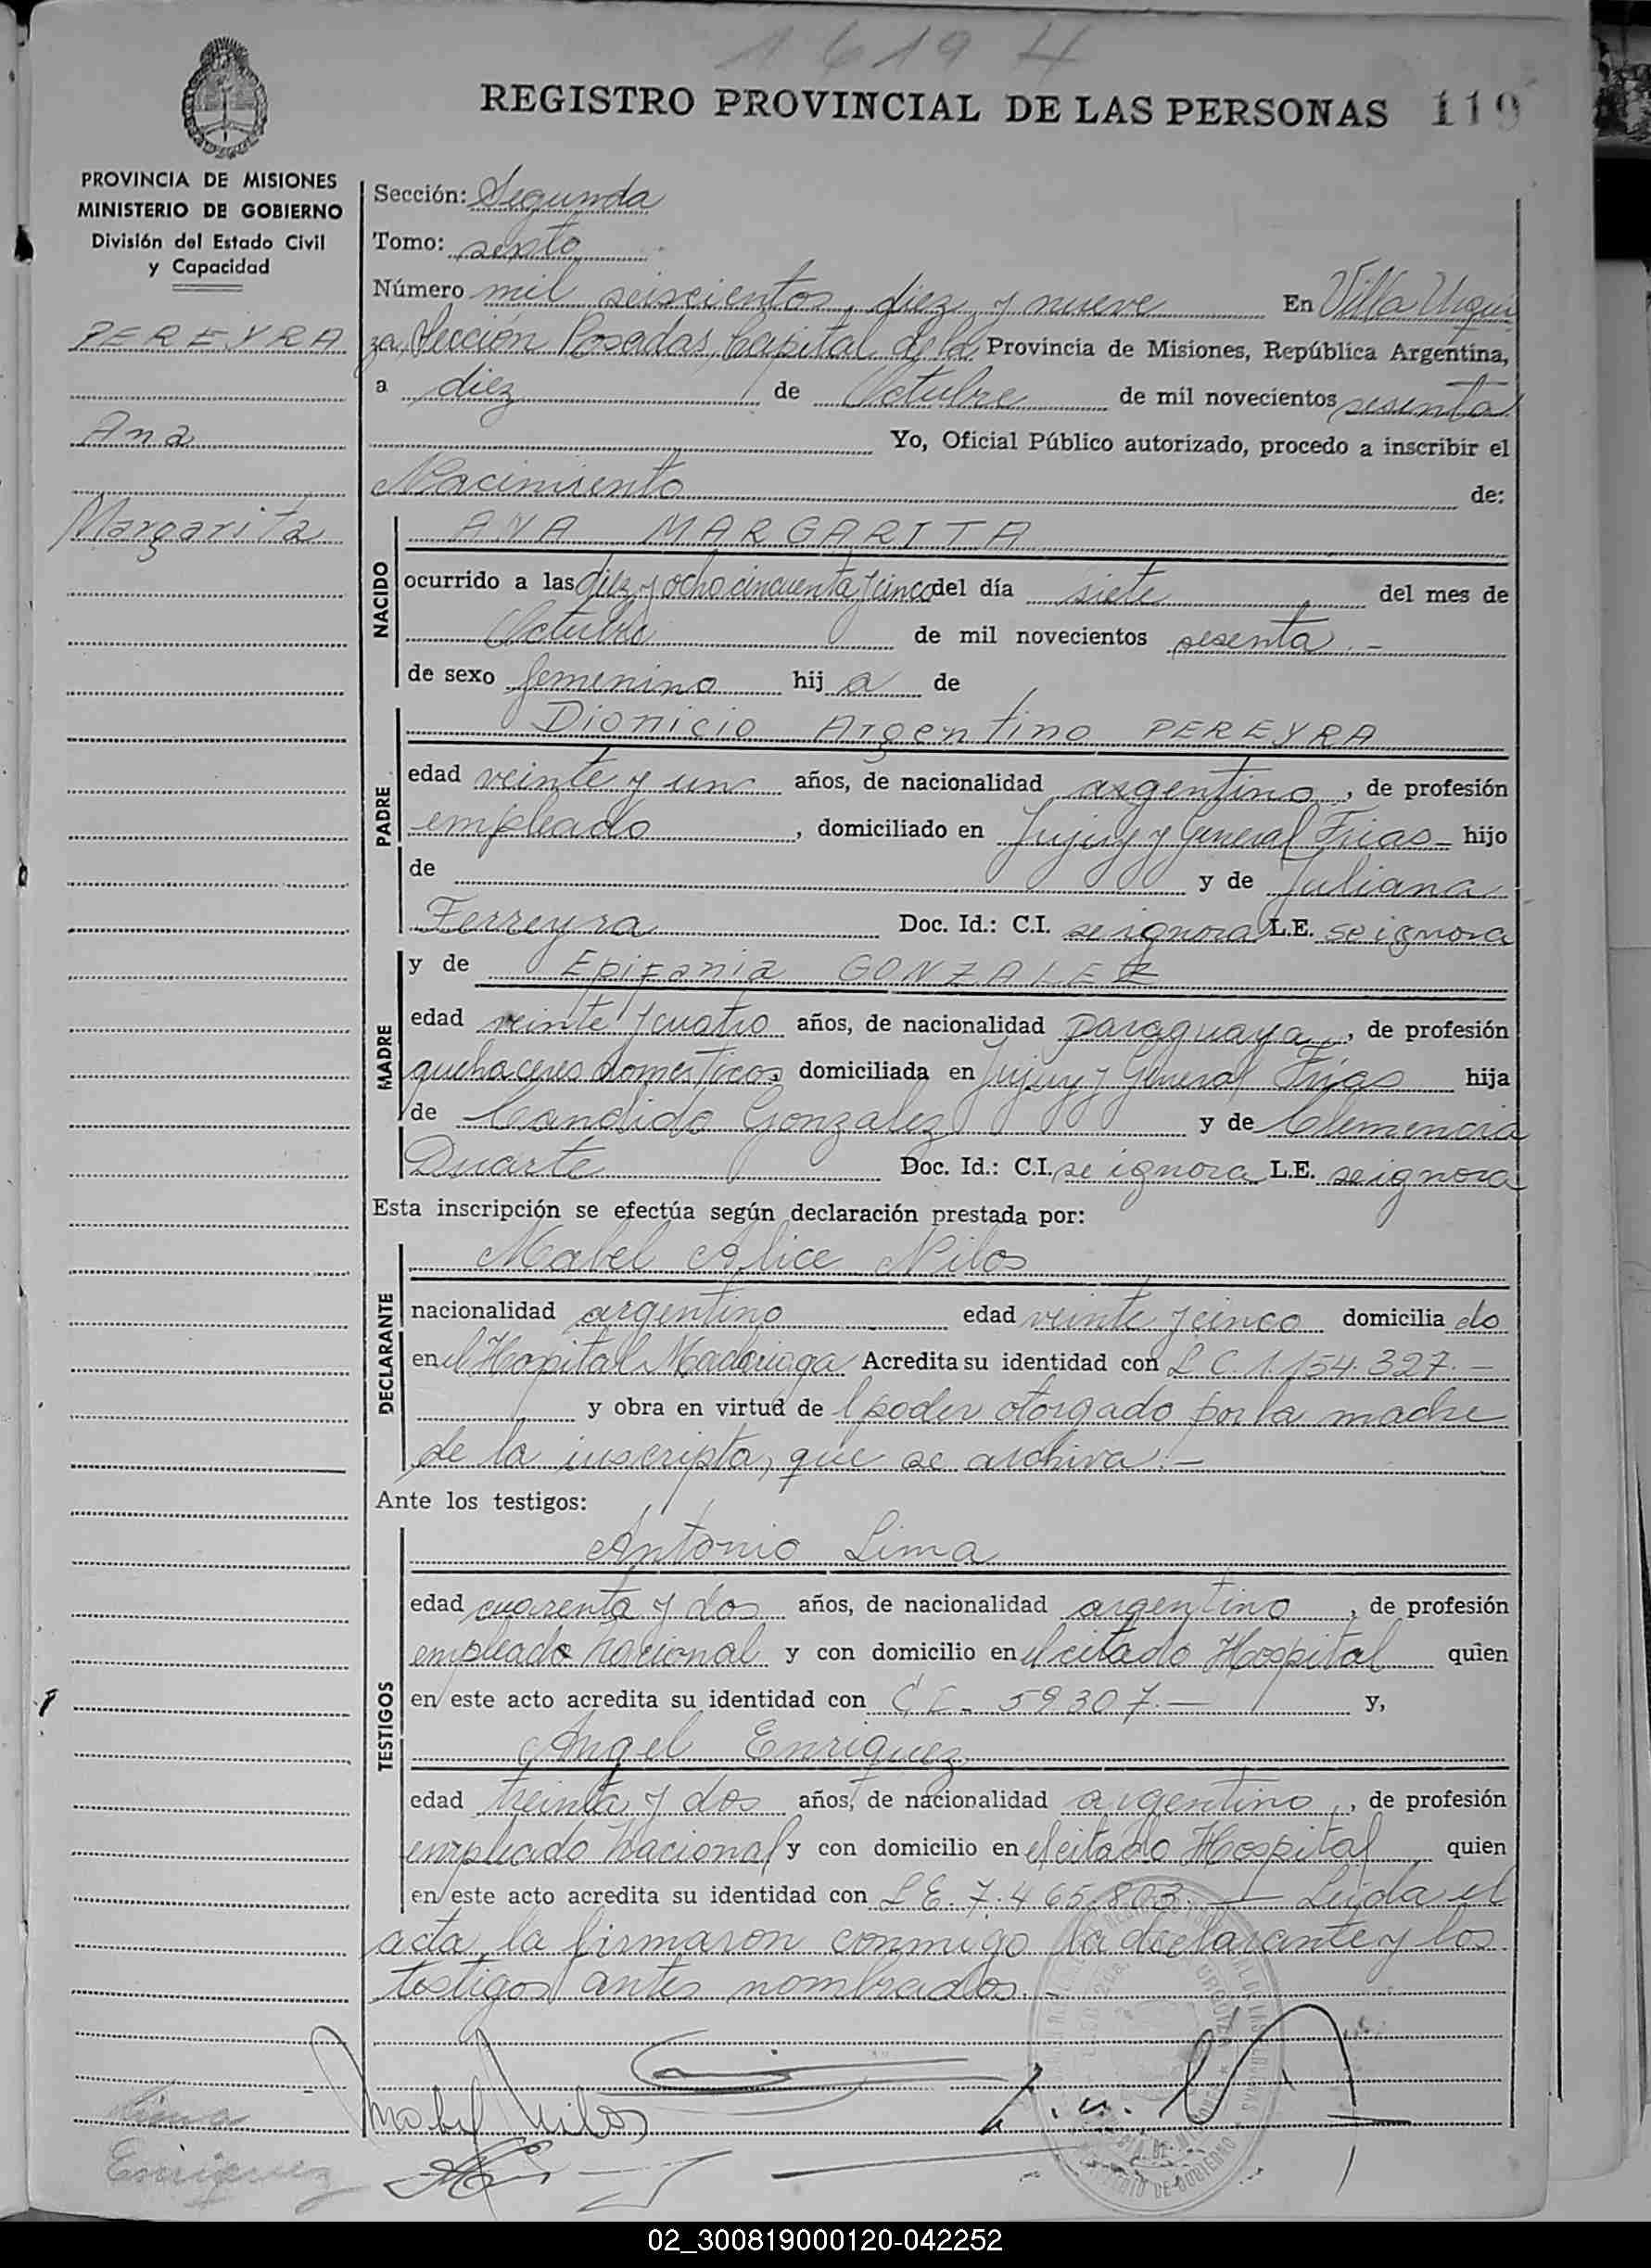 1619 H
REGISTRO PROVINCIAL DE LAS PERSONAS 119
PROVINCIA DE MISIONES
MINISTERIO DE GOBIERNO
División del Estado Civil
y Capacidad
PEREYRA
Ana
Margarita
Sección: Segunda
Tomo: sexto
Número mil seiscientos diez y nueve En Villa Urqui
za, Sección Posadas, Capital de la Provincia de Misiones, República Argentina,
a diez de Octubre de mil novecientos sesenta
Yo, Oficial Público autorizado, procedo a inscribir el
Nacimiento de:
NACIDO
ANA MARGARITA
ocurrido a las diez y ocho cincuenta y cinco del día siete del mes de
Octubre de mil novecientos sesenta.-
de sexo femenino hij a de
PADRE
Dionicio Argentino PEREYRA
edad veinte y un años, de nacionalidad argentino, de profesión
empleado, domiciliado en Jujuy y General Frias - hijo
de y de Juliana
Ferreyra Doc. Id.: C.I. se ignora L.E. se ignora
MADRE
y de Epifania GONZALEZ
edad veinte y cuatro años, de nacionalidad paraguaya, de profesión
quehaceres domesticos domiciliada en Jujuy y General Frias hija
de Candido Gonzalez y de Clemencia
Duarte Doc. Id.: C.I. se ignora L.E. se ignora
Esta inscripción se efectúa según declaración prestada por:
DECLARANTE
Mabel Alice Nilos
nacionalidad argentino edad veinte y cinco domicilia do
en el Hospital Madariaga Acredita su identidad con L C. 1.154.327.-
y obra en virtud de l poder otorgado por la madre
de la inscripta, que se archiva.-
Ante los testigos:
TESTIGOS
Antonio Lima
edad cuarenta y dos años, de nacionalidad argentino, de profesión
empleado nacional y con domicilio en el citado Hospital quien
en este acto acredita su identidad con C I - 59307.- y,
Angel Enriquez
edad treinta y dos años, de nacionalidad argentino, de profesión
empleado nacional y con domicilio en el citado Hospital quien
en este acto acredita su identidad con L E. 7.465.803.- Leida el
acta, la firmaron conmigo la declarante y los
testigos antes nombrados.-
Mabel Nilos
Lima
Enriquez
02_300819000120-042252